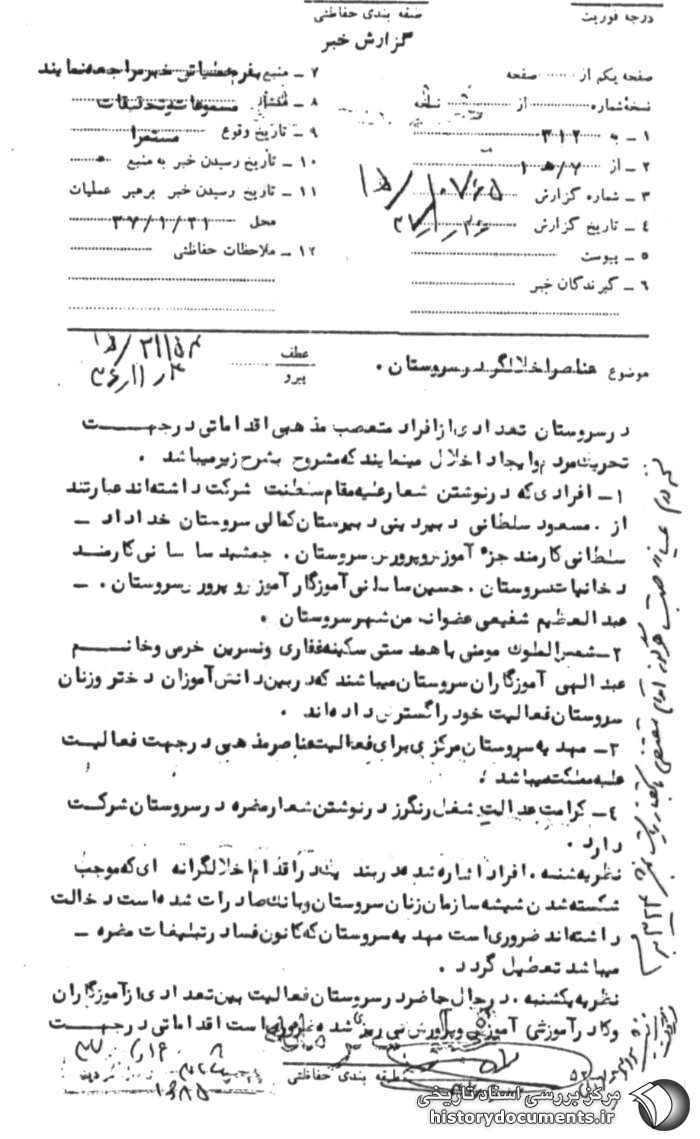 درجه فوریت
طبقه بندی حفاظتی
گزارش خبر
صفحه یکم از صفحه
نسخه شماره از نسخه
۱ ـ به ۳۱۲
۲ ـ از ۷/ه ۱
۳ ـ شماره گزارش
۴ ـ تاریخ گزارش
۵ ـ پیوست
۶ ـ گیرندگان خبر
۷ ـ منبع بفرم خبر مراجعه نمایند
۸ ـ منشأ مسموعات و تحقیقات
۹ ـ تاریخ وقوع مستمرا
۱۰ ـ تاریخ رسیدن خبر به منبع
۱۱ ـ تاریخ رسیدن خبر برهبر عملیات
محل ۳۷/۱/۲۱
۱۲ ـ ملاحظات حفاظتی
موضوع عناصر اخلالگر در سروستان .
عطف
پیرو
در سروستان تعدادی از افراد متعصب مذهبی اقداماتی در جهت
تحریک مردم و ایجاد اخلال مینمایند که مشروح بشرح زیر میباشد .
۱ـ افرادی که در نوشتن شعار علیه مقام سلطنت شرکت داشته اند عبارتند
از . مسعود سلطانی دبیر دینی دبیرستان کمالی سروستان خداداد ـ
سلطانی کارمند جزء آموزش و پرورش سروستان . جمشید ساسانی کارمند
دخانیات سروستان . حسین ساسانی آموزگار آموزش و پرورش سروستان . ـ
عبدالعظیم شفیعی عضو انجمن شهر سروستان .
۲ـ شمس الملوک مومنی با همدستی سکینه غفاری و نسرین خرمی و خانم
عبدالهی آموزگاران سروستان میباشند که در بین دانش آموزان دختر و زنان
سروستان فعالیت خود را گسترش داده اند .
۳ـ مهدیه سروستان مرکزی برای فعالیت عناصر مذهبی در جهت فعالیت
علیه مملکت میباشد .
۴ـ کرامت عدالت شغل رنگرز در نوشتن شعار مضره در سروستان شرکت
دارد .
نظریه شنبه . افراد اشاره شده در بند یک در اقدام اخلالگرانه ای که موجب
شکسته شدن شیشه سازمان زنان سروستان و بانک صادرات شده است دخالت
داشته اند ضروری است مهدیه سروستان که کانون فساد و تبلیغات مضره ـ
میباشد تعطیل گردد .
نظریه یکشنبه . در حال حاضر در سروستان فعالیت بین تعدادی از آموزگاران
و کادر آموزشی آموزش و پرورش پی ریزی شده ضروری است اقداماتی در جهت
طبقه بندی حفاظتی
مرکز بررسی اسناد تاریخی
historydocuments.ir